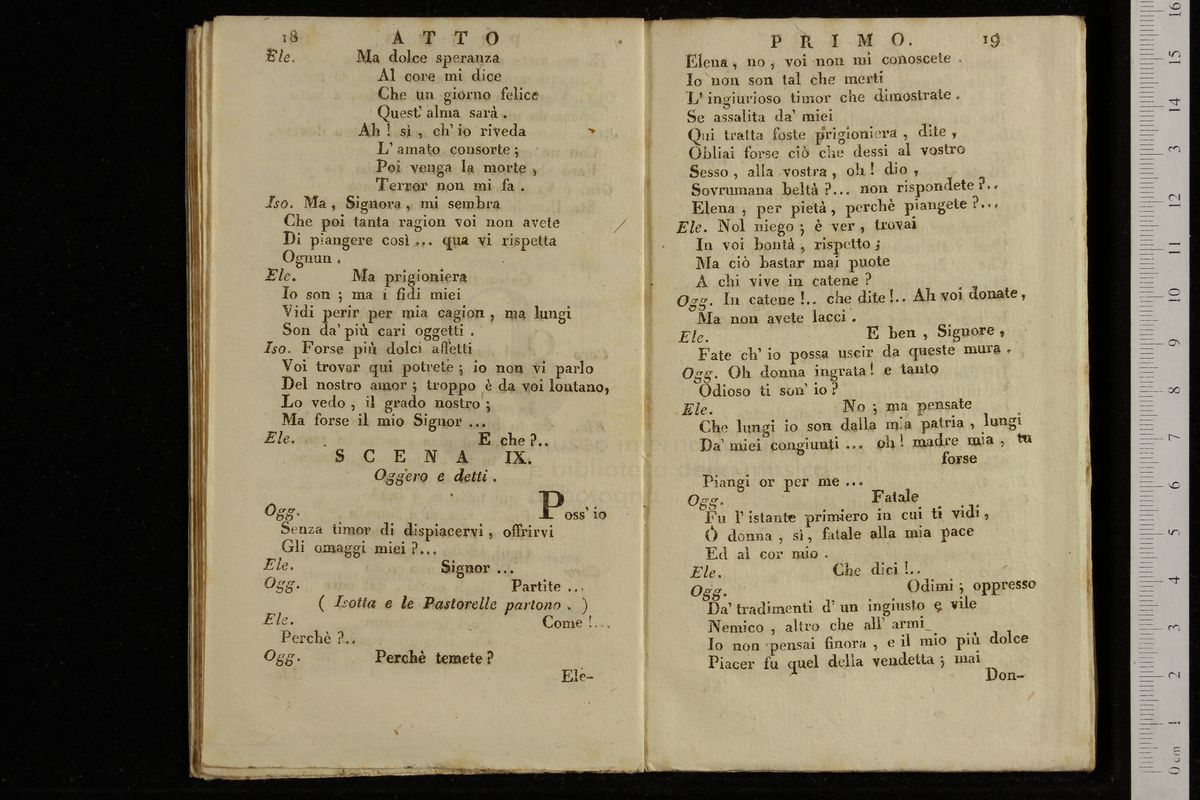 18 A T T O
Ele. Ma dolce speranza
Al core mi dice
Che un giorno felice
Quest' alma sarà .
Ah ! sì , ch' io riveda
L' amato consorte ;
Poi venga la morte ,
Terror non mi fa .
Iso. Ma , Signora , mi sembra
Che poi tanta ragion voi non avete
Di piangere così ... qua vi rispetta
Ognun .
Ele. Ma prigioniera
Io son ; ma i fidi miei
Vidi perir per mia cagion , ma lungi
Son da' più cari oggetti .
Iso. Forse più dolci affetti
Voi trovar qui potrete ; io non vi parlo
Del nostro amor ; troppo è da voi lontano,
Lo vedo , il grado nostro ;
Ma forse il mio Signor ...
Ele. E che ?..
S C E N A IX.
Oggero e detti .
Ogg. Poss' io
Senza timor di dispiacervi , offrirvi
Gli omaggi miei ?...
Ele. Signor ...
Ogg. Partite ...
( Isotta e le Pastorelle partono . )
Ele. Come !...
Perchè ?..
Ogg. Perchè temete ?
Ele-
P R I M O. 19
Elena , no , voi non mi conoscete .
Io non son tal che merti
L' ingiurioso timor che dimostrate .
Se assalita da' miei
Qui tratta foste prigioniera , dite ,
Obliai forse ciò che dessi al vostro
Sesso , alla vostra , oh ! dio ,
Sovrumana beltà ?... non rispondete ?..
Elena , per pietà , perchè piangete ?...
Ele. Nol niego ; è ver , trovai
In voi bontà , rispetto ;
Ma ciò bastar mai puote
A chi vive in catene ?
Ogg. In catene !.. che dite !.. Ah voi donate ,
Ma non avete lacci .
Ele. E ben , Signore ,
Fate ch' io possa uscir da queste mura .
Ogg. Oh donna ingrata ! e tanto
Odioso ti son' io ?
Ele. No ; ma pensate
Che lungi io son dalla mia patria , lungi
Da' miei congiunti ... oh ! madre mia , tu
forse
Piangi or per me ...
Ogg. Fatale
Fu l' istante primiero in cui ti vidi ,
O donna , sì , fatale alla mia pace
Ed al cor mio .
Ele. Che dici !..
Ogg. Odimi ; oppresso
Da' tradimenti d' un ingiusto e vile
Nemico , altro che all' armi
Io non pensai finora , e il mio più dolce
Piacer fu quel della vendetta ; mai
Don-